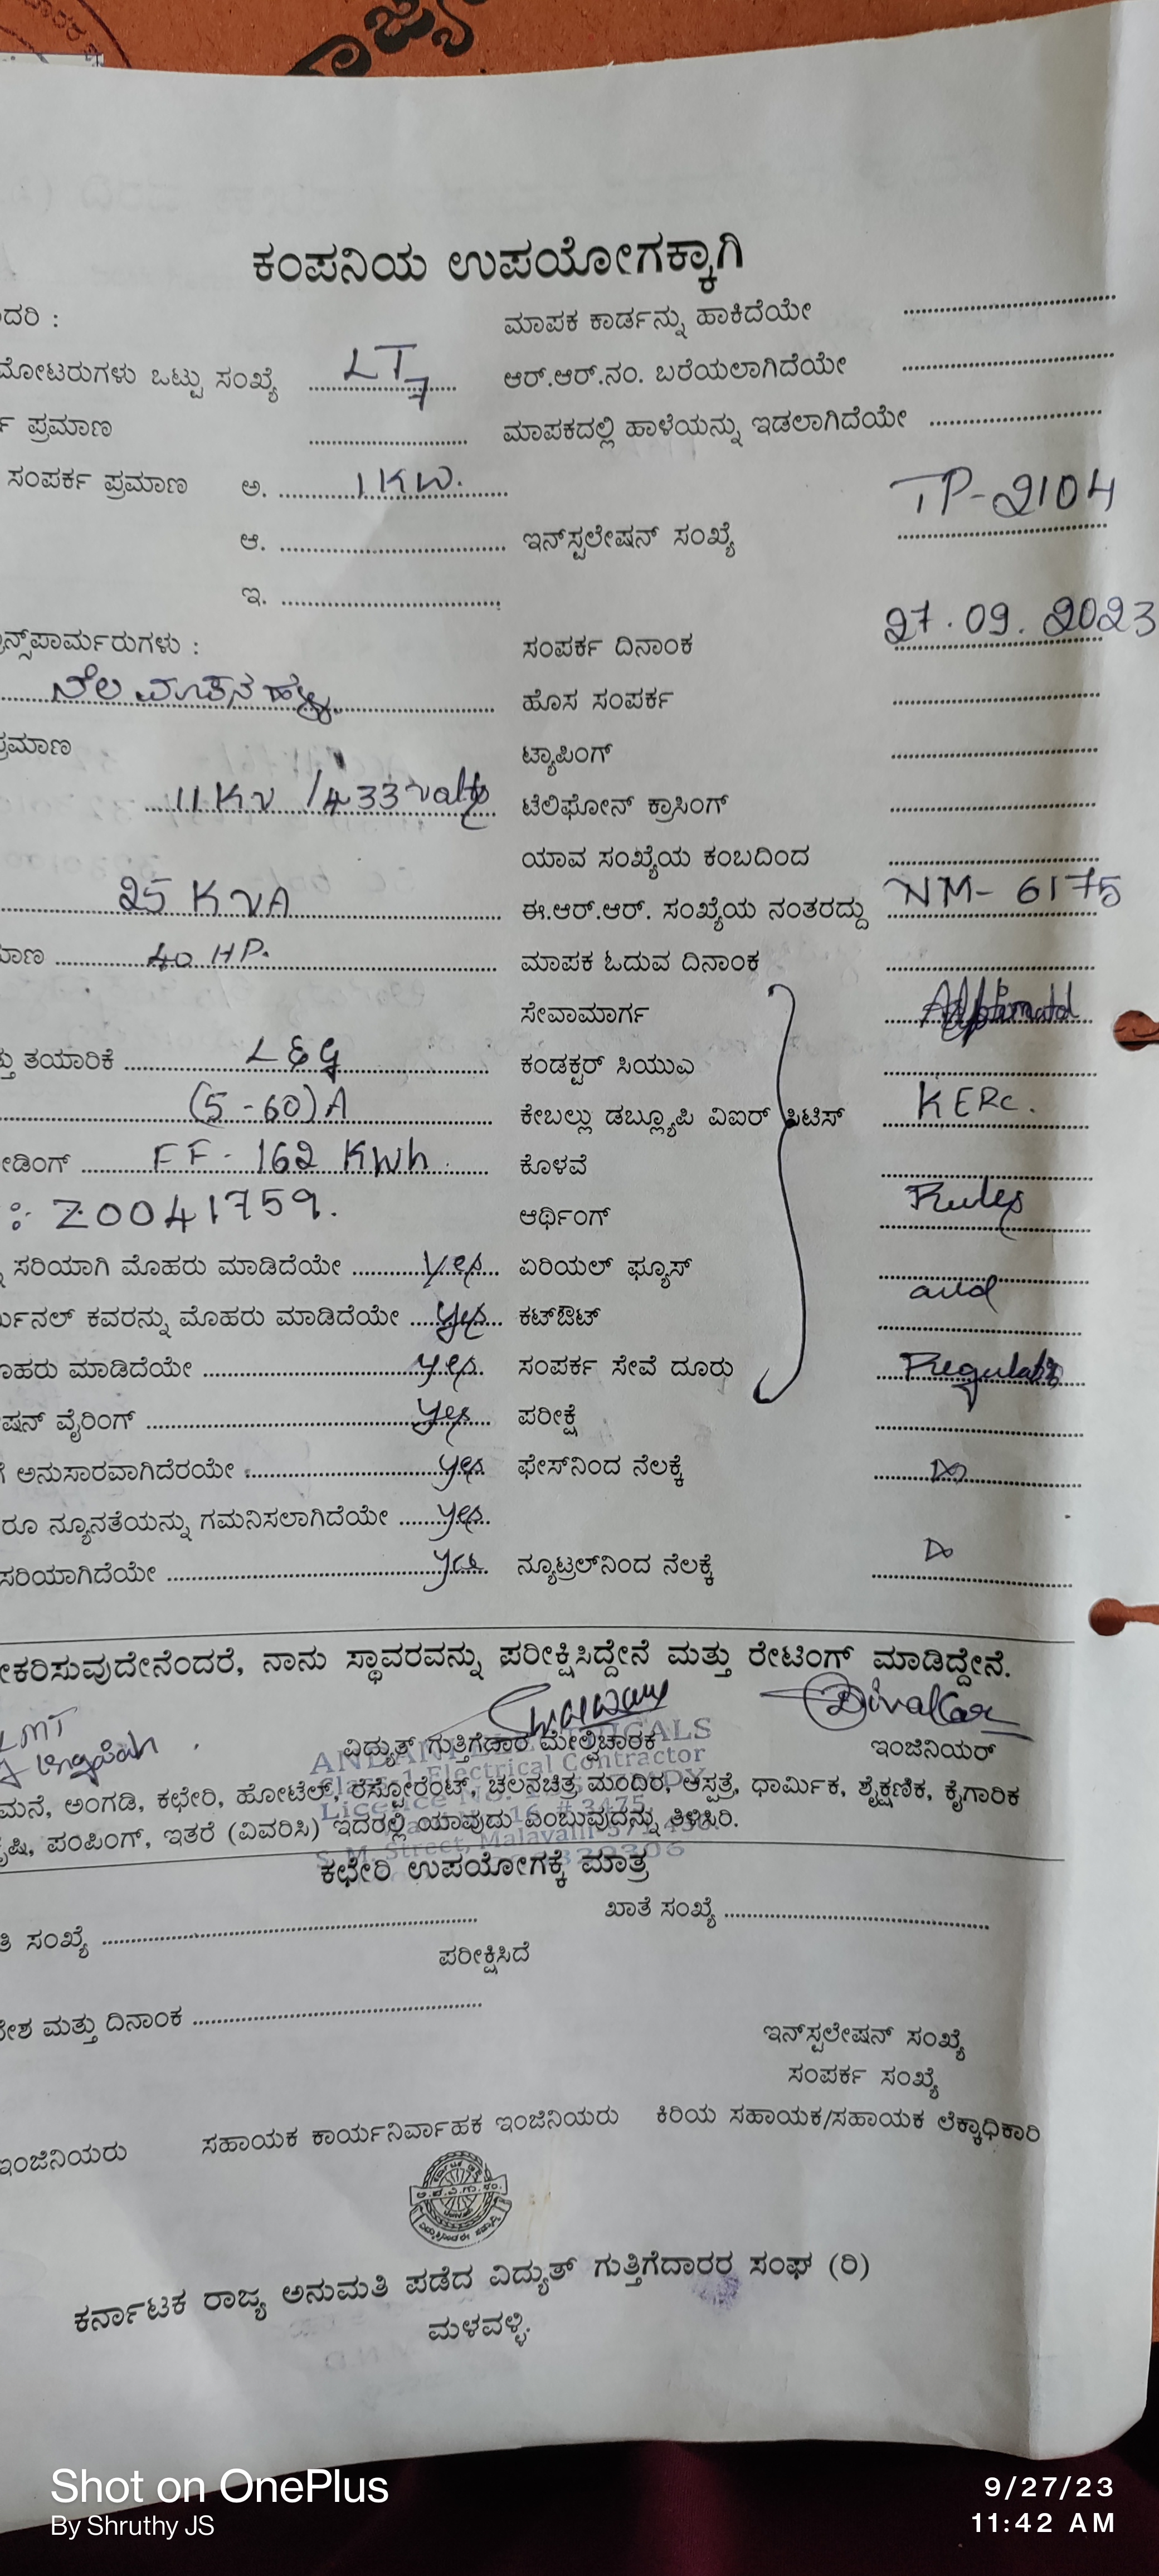 ಕಂಪನಿಯ ಉಪಯೋಗಕ್ಕಾಗಿ
ದರಿ :
ಮಾಪಕ ಕಾರ್ಡನ್ನು ಹಾಕಿದೆಯೇ
ಮೋಟರುಗಳು ಒಟ್ಟು ಸಂಖ್ಯೆ LT7 ಆರ್.ಆರ್.ನಂ. ಬರೆಯಲಾಗಿದೆಯೇ
ಪ್ರಮಾಣ ಮಾಪಕದಲ್ಲಿ ಹಾಳೆಯನ್ನು ಇಡಲಾಗಿದೆಯೇ
ಸಂಪರ್ಕ ಪ್ರಮಾಣ ಅ. 1KW.
TP-2104
ಆ. ಇನ್‌ಸ್ಟಲೇಷನ್ ಸಂಖ್ಯೆ
ಇ.
ನ್ಸ್‌ಪಾರ್ಮರುಗಳು : ಸಂಪರ್ಕ ದಿನಾಂಕ 27.09.2023
ಹೊಸ ಸಂಪರ್ಕ
ಪ್ರಮಾಣ ಟ್ಯಾಪಿಂಗ್
11KV /433 ಟೆಲಿಫೋನ್ ಕ್ರಾಸಿಂಗ್
ಯಾವ ಸಂಖ್ಯೆಯ ಕಂಬದಿಂದ
25 KVA ಈ.ಆರ್.ಆರ್. ಸಂಖ್ಯೆಯ ನಂತರದ್ದು NM- 6175
ಮಾಣ 40 HP. ಮಾಪಕ ಓದುವ ದಿನಾಂಕ
ಸೇವಾಮಾರ್ಗ
ತ್ತು ತಯಾರಿಕೆ L&G ಕಂಡಕ್ಟರ್ ಸಿಯುಎ
(5-60)A ಕೇಬಲ್ಲು ಡಬ್ಲ್ಯೂಪಿ ವಿಐರ್ ಪಿಟಿಸ್ KERC.
ೇಡಿಂಗ್ FF- 162 KWh ಕೊಳವೆ
: Z0041759. ಆರ್ಥಿಂಗ್ Rules
ಸರಿಯಾಗಿ ಮೊಹರು ಮಾಡಿದೆಯೇ Yes ಏರಿಯಲ್ ಫ್ಯೂಸ್
and
ರ್ಮಿನಲ್ ಕವರನ್ನು ಮೊಹರು ಮಾಡಿದೆಯೇ Yes ಕಟ್‌ಔಟ್
ೊಹರು ಮಾಡಿದೆಯೇ Yes. ಸಂಪರ್ಕ ಸೇವೆ ದೂರು
ಷನ್ ವೈರಿಂಗ್ Yes ಪರೀಕ್ಷೆ
ಅನುಸಾರವಾಗಿದೆರಯೇ Yes ಫೇಸ್‌ನಿಂದ ನೆಲಕ್ಕೆ
ರೂ ನ್ಯೂನತೆಯನ್ನು ಗಮನಿಸಲಾಗಿದೆಯೇ Yes
ಸರಿಯಾಗಿದೆಯೇ Yes ನ್ಯೂಟ್ರಲ್‌ನಿಂದ ನೆಲಕ್ಕೆ
ೀಕರಿಸುವುದೇನೆಂದರೆ, ನಾನು ಸ್ಥಾವರವನ್ನು ಪರೀಕ್ಷಿಸಿದ್ದೇನೆ ಮತ್ತು ರೇಟಿಂಗ್ ಮಾಡಿದ್ದೇನೆ.
ವಿದ್ಯುತ್ ಗುತ್ತಿಗೆದಾರ ಮೇಲ್ವಿಚಾರಕ ಇಂಜಿನಿಯರ್
Electrical Contractor
ಮನೆ, ಅಂಗಡಿ, ಕಛೇರಿ, ಹೋಟೆಲ್, ರೆಸ್ಟೋರೆಂಟ್, ಚಲನಚಿತ್ರ ಮಂದಿರ, ಆಸ್ಪತ್ರೆ, ಧಾರ್ಮಿಕ, ಶೈಕ್ಷಣಿಕ, ಕೈಗಾರಿಕ
ೃಷಿ, ಪಂಪಿಂಗ್, ಇತರೆ (ವಿವರಿಸಿ) ಇದರಲ್ಲಿ ಯಾವುದು ಎಂಬುವುದನ್ನು ತಿಳಿಸಿರಿ.
ಕಛೇರಿ ಉಪಯೋಗಕ್ಕೆ ಮಾತ್ರ
ತಿ ಸಂಖ್ಯೆ ಖಾತೆ ಸಂಖ್ಯೆ
ಪರೀಕ್ಷಿಸಿದೆ
ೇಶ ಮತ್ತು ದಿನಾಂಕ
ಇನ್‌ಸ್ಟಲೇಷನ್ ಸಂಖ್ಯೆ
ಸಂಪರ್ಕ ಸಂಖ್ಯೆ
ಇಂಜಿನಿಯರು ಸಹಾಯಕ ಕಾರ್ಯನಿರ್ವಾಹಕ ಇಂಜಿನಿಯರು ಕಿರಿಯ ಸಹಾಯಕ/ಸಹಾಯಕ ಲೆಕ್ಕಾಧಿಕಾರಿ
ಕರ್ನಾಟಕ ರಾಜ್ಯ ಅನುಮತಿ ಪಡೆದ ವಿದ್ಯುತ್ ಗುತ್ತಿಗೆದಾರರ ಸಂಘ (ರಿ)
ಮಳವಳ್ಳಿ.
Shot on OnePlus
By Shruthy JS
9/27/23
11:42 AM